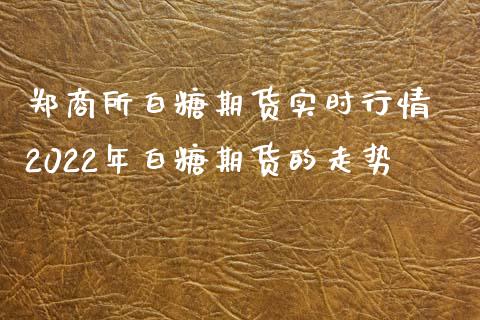 郑商所白糖期货实时行情
2022年白糖期货的走势